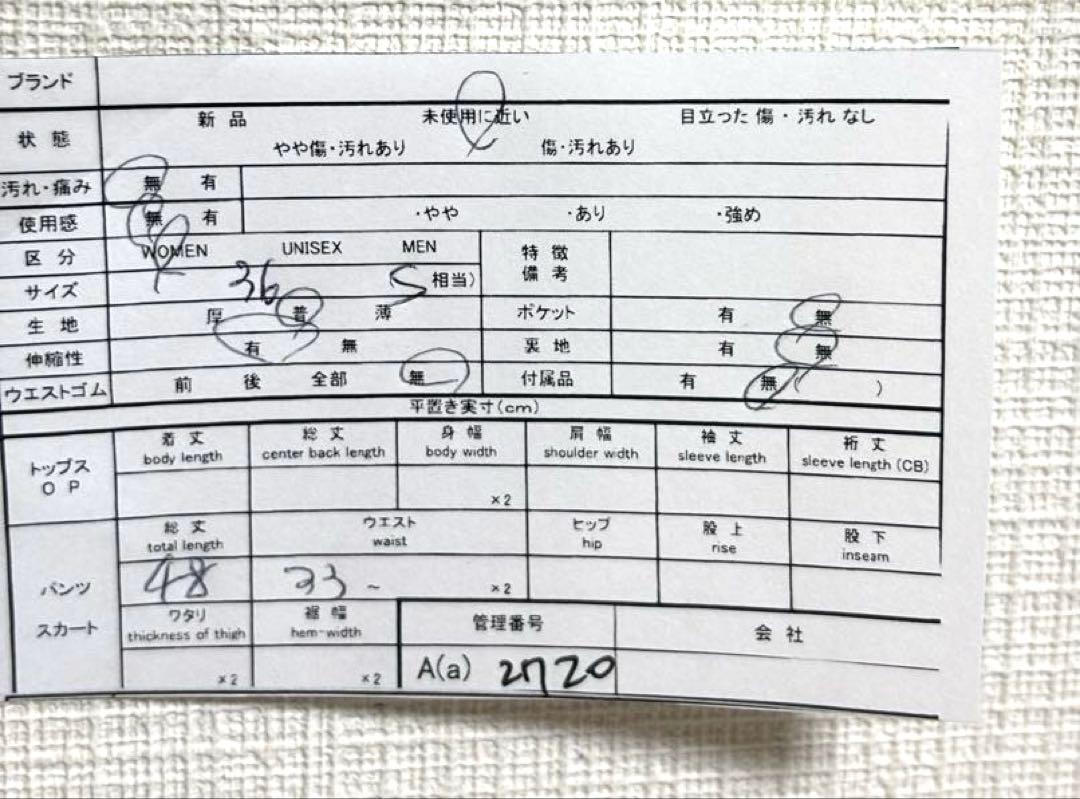 ブランド
状態 新品 未使用に近い 目立った傷・汚れなし
やや傷・汚れあり 傷・汚れあり
汚れ・痛み 無 有
使用感 無 有 ・やや ・あり ・強め
区分 WOMEN UNISEX MEN 特徴
備考
サイズ 36 S 相当)
生地 厚 普 薄 ポケット 有 無
伸縮性 有 無 裏地 有 無
ウエストゴム 前 後 全部 無 付属品 有 無( )
平置き実寸(cm)
トップス
OP
着丈 総丈 身幅 肩幅 袖丈 裄丈
body length center back length body width shoulder width sleeve length sleeve length (CB)
×2
パンツ
スカート
総丈 ウエスト ヒップ 股上 股下
total length waist hip rise inseam
48 33 ~ ×2
ワタリ 裾幅 管理番号 会社
thickness of thigh hem-width
×2 ×2 A(a) 2720